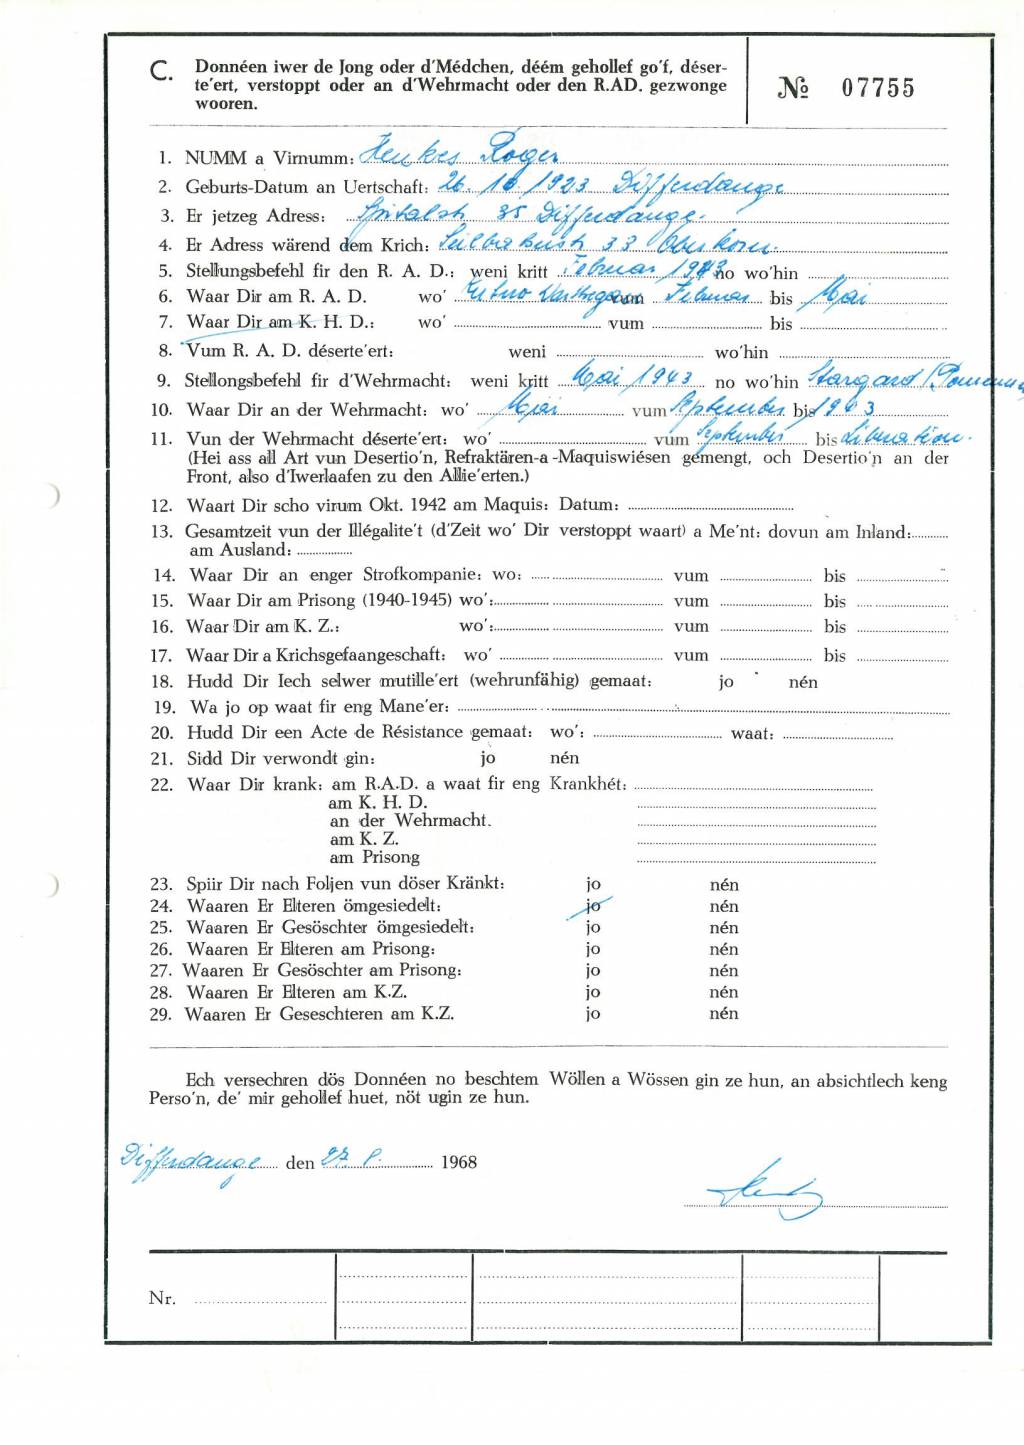 C. Donnéen iwer de Jong oder d'Médchen, déém gehollef go'f, déser-
te'ert, verstoppt oder an d'Wehrmacht oder den R.AD. gezwonge
wooren.
№ 07755
1. NUMM a Virnumm: Henkes Roger
2. Geburts-Datum an Uertschaft: 26. 10 1923 Differdange
3. Er jetzeg Adress: Spitalstr 35 Differdange.
4. Er Adress wärend dem Krich: 33 Oberkorn.
5. Stellungsbefehl fir den R. A. D.: weni kritt Februar 1943 no wo'hin
6. Waar Dir am R. A. D. wo' Kutno Warthegau vum Februar bis Mai
7. Waar Dir am K. H. D.: wo' vum bis
8. Vum R. A. D. déserte'ert: weni wo'hin
9. Stellongsbefehl fir d'Wehrmacht: weni kritt Mai 1943 no wo'hin Stargard
10. Waar Dir an der Wehrmacht: wo' Mai vum September bis 1943
11. Vun der Wehrmacht déserte'ert: wo' vum September bis Libération.
(Hei ass all Art vun Desertio'n, Refraktären-a-Maquiswiésen gemengt, och Desertio'n an der
Front, also d'Iwerlaafen zu den Allie'erten.)
12. Waart Dir scho virum Okt. 1942 am Maquis: Datum:
13. Gesamtzeit vun der Illégalite't (d'Zeit wo' Dir verstoppt waart) a Me'nt: dovun am Inland:
am Ausland:
14. Waar Dir an enger Strofkompanie: wo: vum bis
15. Waar Dir am Prisong (1940-1945) wo': vum bis
16. Waar Dir am K. Z.: wo': vum bis
17. Waar Dir a Krichsgefaangeschaft: wo' vum bis
18. Hudd Dir Iech selwer mutille'ert (wehrunfähig) gemaat: jo nén
19. Wa jo op waat fir eng Mane'er:
20. Hudd Dir een Acte de Résistance gemaat: wo': waat:
21. Sidd Dir verwondt gin: jo nén
22. Waar Dir krank: am R.A.D. a waat fir eng Krankhét:
am K. H. D.
an der Wehrmacht.
am K. Z.
am Prisong
23. Spiir Dir nach Foljen vun döser Kränkt: jo nén
24. Waaren Er Elteren ömgesiedelt: jo nén
25. Waaren Er Gesöschter ömgesiedelt: jo nén
26. Waaren Er Elteren am Prisong: jo nén
27. Waaren Er Gesöschter am Prisong: jo nén
28. Waaren Er Elteren am K.Z. jo nén
29. Waaren Er Geseschteren am K.Z. jo nén
Ech versechren dös Donnéen no beschtem Wöllen a Wössen gin ze hun, an absichtlech keng
Perso'n, de' mir gehollef huet, nöt ugin ze hun.
Differdange den 1968
Nr.